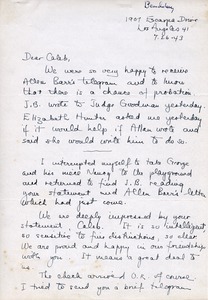 Bembaley
1907 Scarpa Drive
Los Angeles 41
7-26-43
Dear Caleb,
We were so very happy to receive
Allen Barr's telegram and to know
that there is a chance of probation
J.B. wrote to Judge Goodman yesterday.
Elizabeth Hunter asked me yesterday
if it would help if Allan wrote and
said she would write him to do so.
I interrupted myself to take George
and his niece Nancy to the playground
and returned to find J.B. reading
your statement and Allen Barr's letter
which had just come.
We are deeply impressed by your
statement, Caleb. It is so intelligent
so sensitive to fine distinctions, so clear
We are proud and happy in our friendship
with you. It means a great deal to
us.
The check arrived O.K. of course
I tried to send you a brief telegram